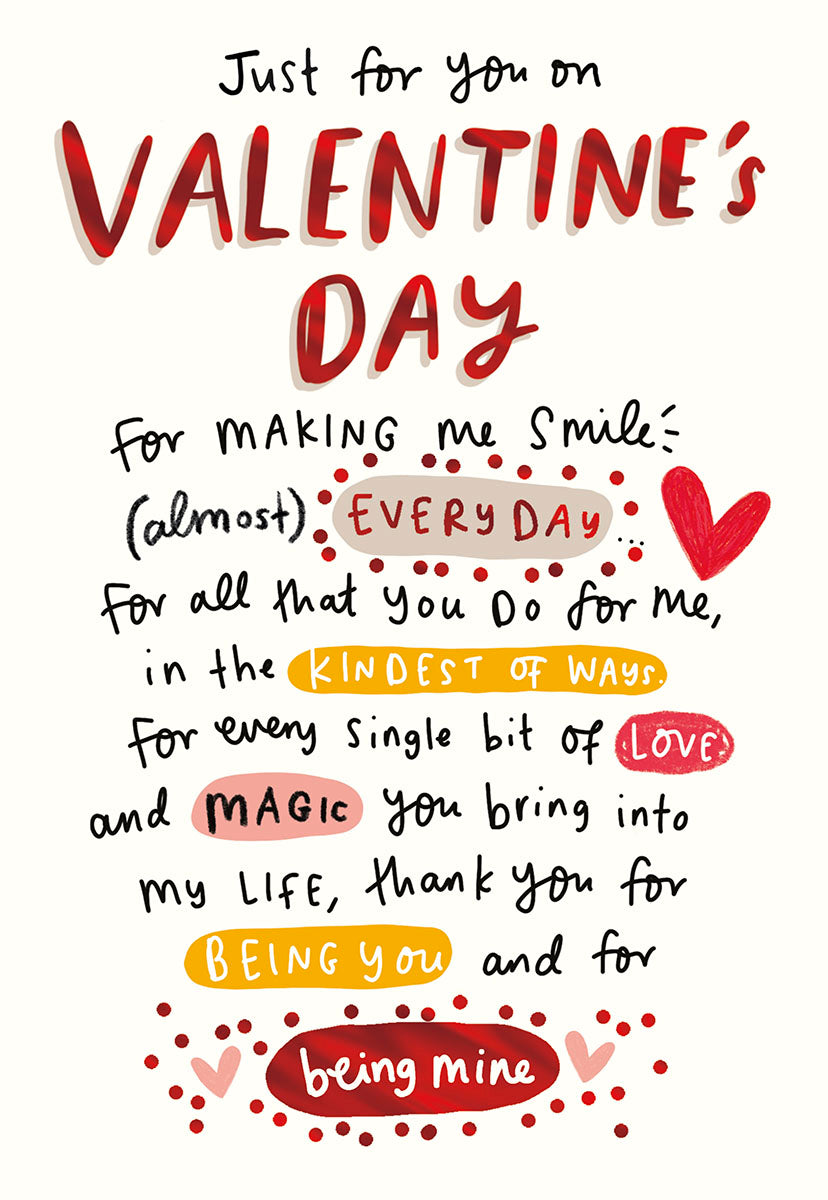 Just for you on
VALENTINE's
DAY
for MAKING me Smile
(almost) EVERY DAY...
for all that you DO for me,
in the KINDEST OF WAYS.
for every single bit of LOVE
and MAGIC you bring into
my LIFE, thank you for
BEING you and for
being mine